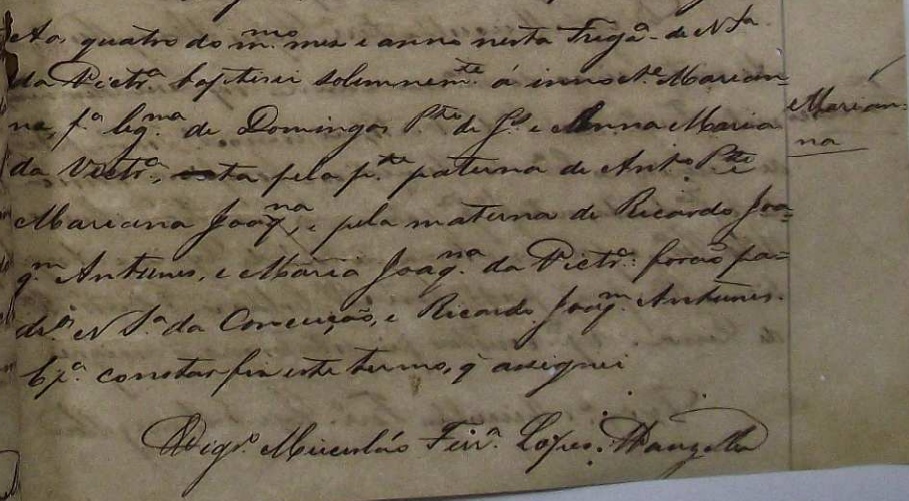 Aos quatro do m.mo mes e anno nesta Freg.a de N Sra
da Victr.a baptisei solemnem.te á innoc.te Marian=
na, f.a leg.ma de Domingos P.to de Js. e Anna Maria
da Victr.a, esta pela p.te paterna de Ant.o P.to e
Mariana Joaq.na, e pela materna de Ricardo Joa=
q.m Antunes, e Maria Joaq.na da Victr.a: forão pa=
dr.os N S.a da Conceição, e Ricardo Joaq.m Antunes.
E p.a constar fiz este termo, q assignei
Marian=
na
Vigr.o Ferr.a Lopes